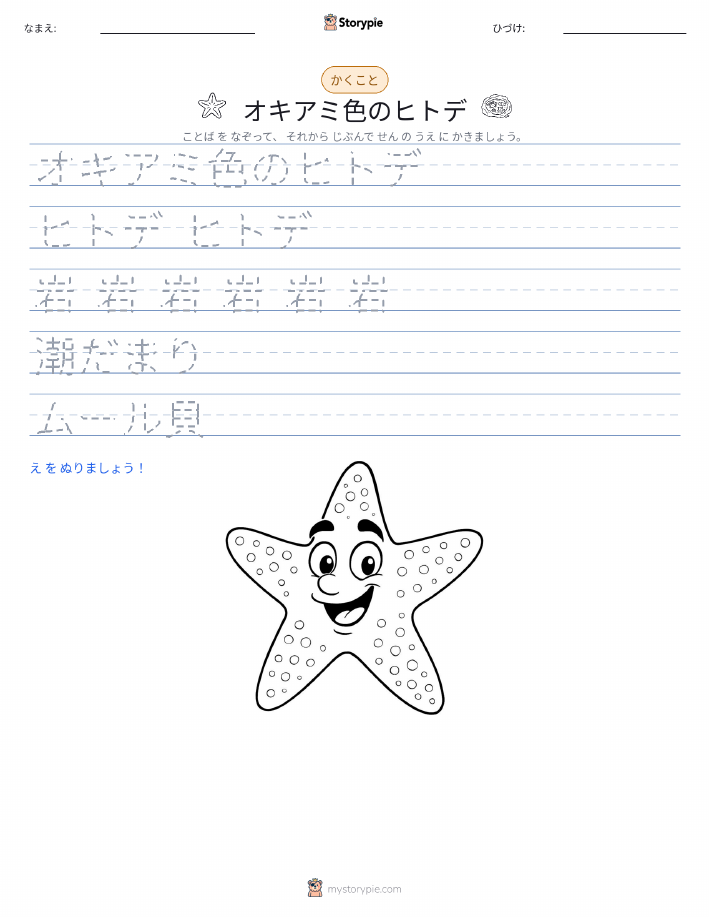 なまえ:
Storypie
ひづけ:
かくこと
オキアミ色のヒトデ
ことば を なぞって、 それから じぶんで せん の うえ に かきましょう。
オキアミ色のヒトデ
ヒトデ ヒトデ
岩 岩 岩 岩 岩 岩
潮だまり
ムール貝
え を ぬりましょう！
mystorypie.com